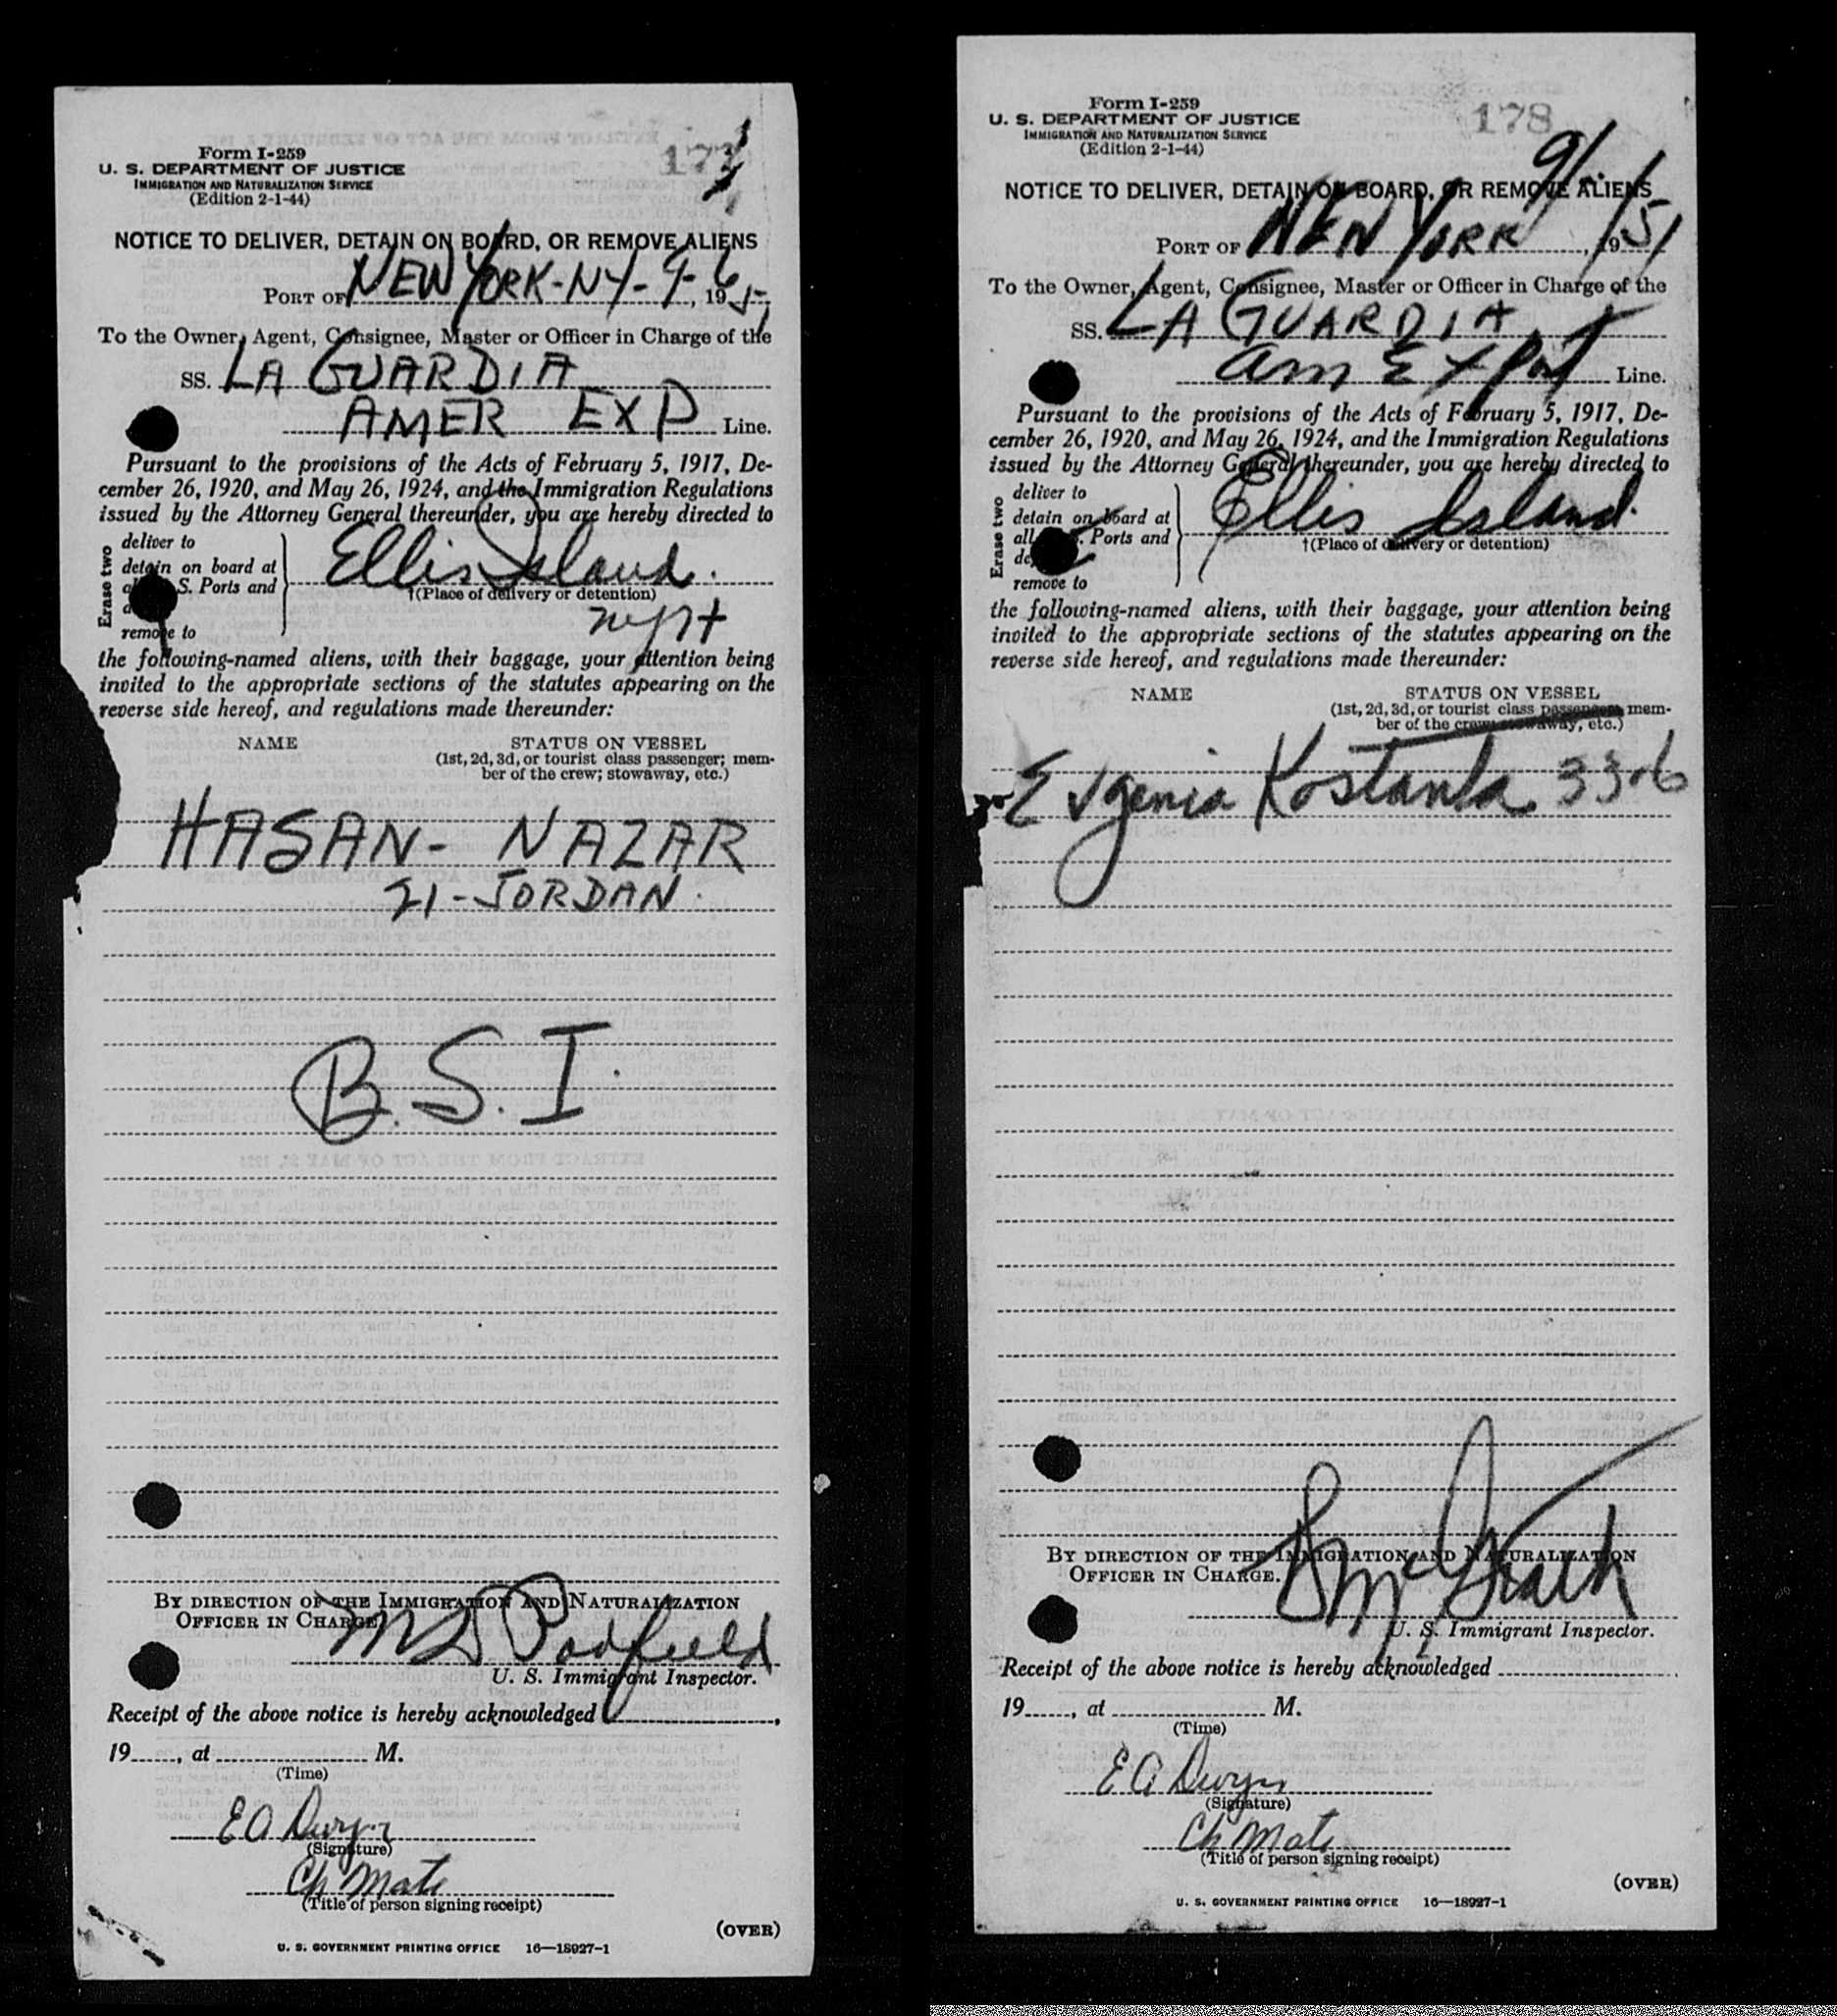 Form I-259
U. S. DEPARTMENT OF JUSTICE
IMMIGRATION AND NATURALIZATION SERVICE
(Edition 2-1-44)
NOTICE TO DELIVER, DETAIN ON BOARD, OR REMOVE ALIENS
PORT OF NEW YORK-NY-9-6, 1951
To the Owner, Agent, Consignee, Master or Officer in Charge of the
SS. LA GUARDIA
AMER EXP Line.
Pursuant to the provisions of the Acts of February 5, 1917, De-
cember 26, 1920, and May 26, 1924, and the Immigration Regulations
issued by the Attorney General thereunder, you are hereby directed to
Erase two
deliver to
detain on board at
S. Ports and
remove to
Ellis Island.
†(Place of delivery or detention)
the following-named aliens, with their baggage, your attention being
invited to the appropriate sections of the statutes appearing on the
reverse side hereof, and regulations made thereunder:
NAME STATUS ON VESSEL
(1st, 2d, 3d, or tourist class passenger; mem-
ber of the crew; stowaway, etc.)
HASAN- NAZAR
21-JORDAN.
B.S.I.
BY DIRECTION OF THE IMMIGRATION AND NATURALIZATION
OFFICER IN CHARGE.
Padfield
U. S. Immigrant Inspector.
Receipt of the above notice is hereby acknowledged
19......, at .................... M.
(Time)
E A Dwyer
(Signature)
Ch Mate
(Title of person signing receipt)
(OVER)
U. S. GOVERNMENT PRINTING OFFICE 16—18927-1
178
Form I-259
U. S. DEPARTMENT OF JUSTICE
IMMIGRATION AND NATURALIZATION SERVICE
(Edition 2-1-44)
NOTICE TO DELIVER, DETAIN ON BOARD, OR REMOVE ALIENS
PORT OF NEW YORK, 1951
To the Owner, Agent, Consignee, Master or Officer in Charge of the
SS. LA GUARDIA
Am Export Line.
Pursuant to the provisions of the Acts of February 5, 1917, De-
cember 26, 1920, and May 26, 1924, and the Immigration Regulations
issued by the Attorney General thereunder, you are hereby directed to
Erase two
deliver to
detain on board at
all Ports and
remove to
Ellis Island.
†(Place of delivery or detention)
the following-named aliens, with their baggage, your attention being
invited to the appropriate sections of the statutes appearing on the
reverse side hereof, and regulations made thereunder:
NAME STATUS ON VESSEL
(1st, 2d, 3d, or tourist class passenger; mem-
ber of the crew; stowaway, etc.)
Evgenia Kostanta
BY DIRECTION OF THE IMMIGRATION AND NATURALIZATION
OFFICER IN CHARGE.
McGrath
U. S. Immigrant Inspector.
Receipt of the above notice is hereby acknowledged
19......, at .................... M.
(Time)
E A Dwyer
(Signature)
Ch Mate
(Title of person signing receipt)
(OVER)
U. S. GOVERNMENT PRINTING OFFICE 16—18927-1